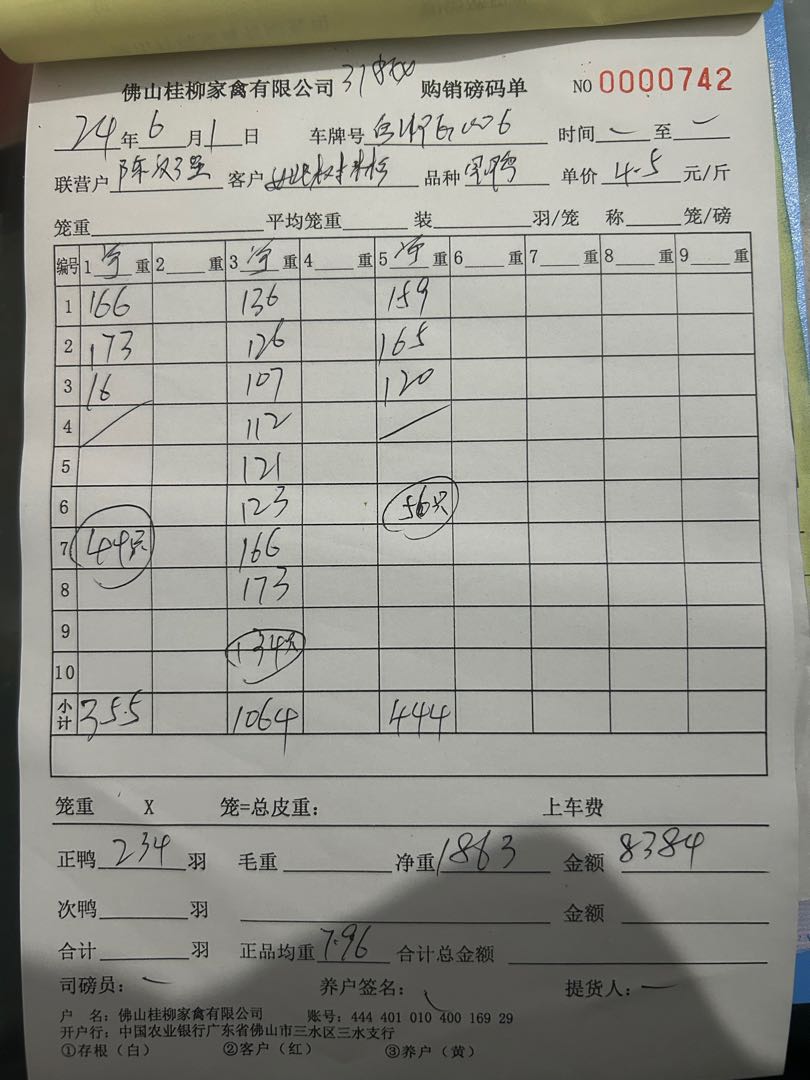 佛山桂柳家禽有限公司 购销磅码单 NO 0000742
24年6月1日 车牌号 时间 一 至 一
联营户 客户 品种 单价 4.5 元/斤
笼重 平均笼重 装 羽/笼 称 笼/磅
编号 1 净 重 2 重 3 净 重 4 重 5 净 重 6 重 7 重 8 重 9 重
1 166 136 159
2 173 126 165
3 16 107 120
4 112
5 121
6 123 56只
7 44只 166
8 173
9 134只
10
小计 355 1064 444
笼重 X 笼=总皮重: 上车费
正鸭 234 羽 毛重 净重 1863 金额 8384
次鸭 羽 金额
合计 羽 正品均重 7.96 合计总金额
司磅员: 养户签名: 提货人:
户 名: 佛山桂柳家禽有限公司 账号: 444 401 010 400 169 29
开户行: 中国农业银行广东省佛山市三水区三水支行
①存根(白) ②客户(红) ③养户(黄)